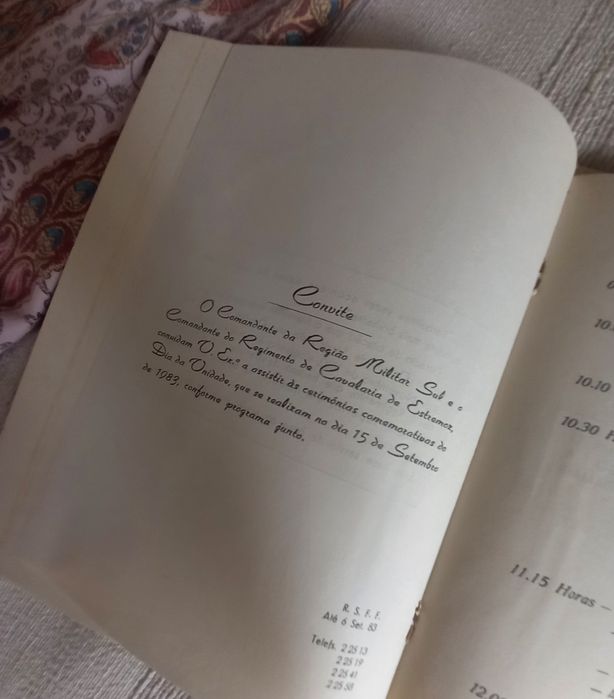 Convite
O Comandante da Região Militar Sul e o
Comandante do Regimento de Cavalaria de Estremoz,
convidam V. Ex.ª a assistir às cerimónias comemorativas do
Dia da Unidade, que se realizam no dia 15 de Setembro
de 1983, conforme programa junto.
R. S. F. F.
Até 6 Set. 83
Telefs. 2 25 13
2 25 19
2 25 41
2 25 58
10.
10.10
10.30
11.15 Horas –
12.00